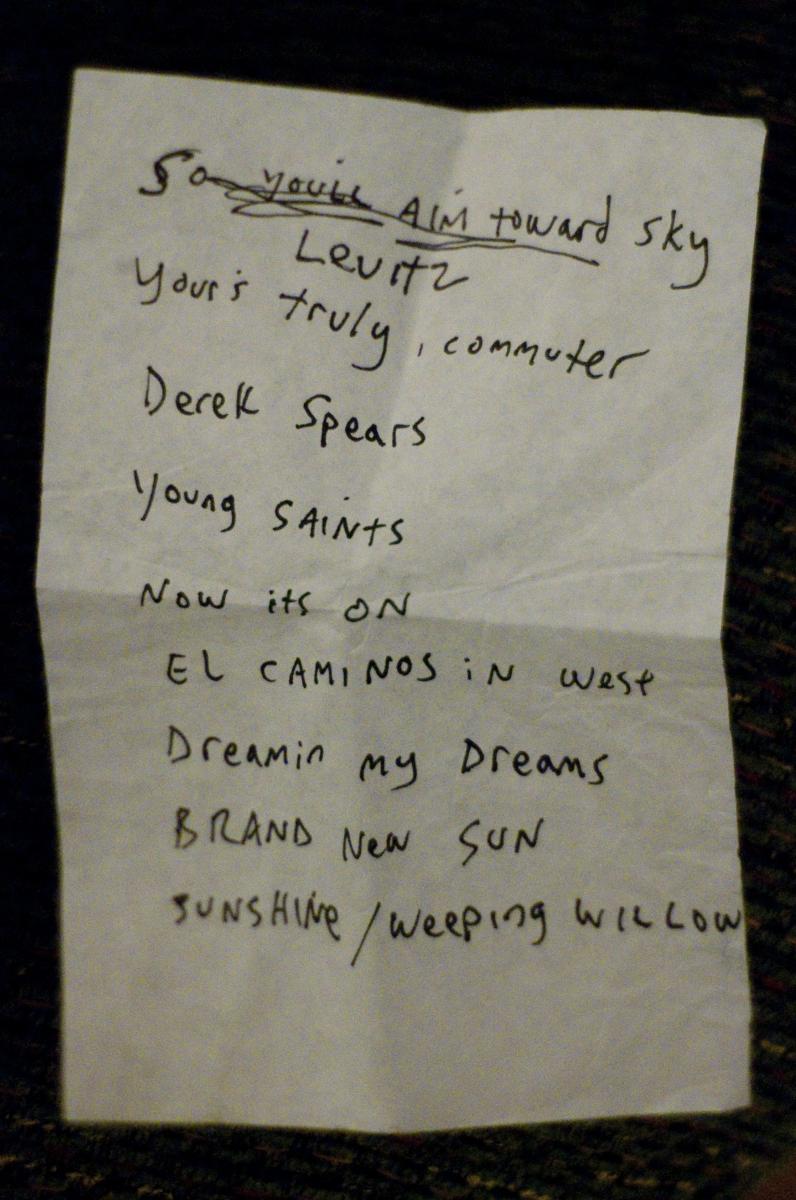 So you'll Aim toward sky
Levitz
Your's truly, commuter
Derek Spears
Young SAiNts
Now its ON
EL CAMINOS iN west
Dreamin my Dreams
BRAND New SUN
SUNSHINe / Weeping WILLOW